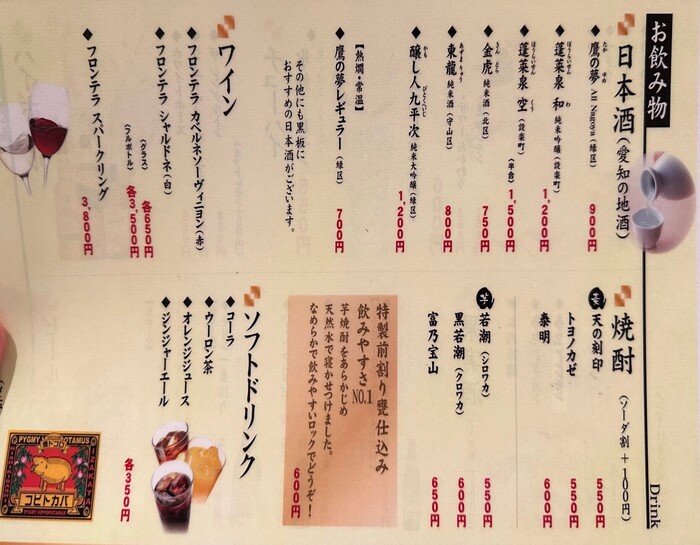 お飲み物
日本酒（愛知の地酒）
◆鷹の夢 All Nagoya（緑区） 900円
◆蓬莱泉 和 純米吟醸（設楽町） 1,200円
◆蓬莱泉 空（設楽町）（半合） 1,500円
◆金虎 純米酒（北区） 750円
◆東龍 純米酒（守山区） 800円
◆醸し人九平次 純米大吟醸（緑区） 1,200円
【熱燗・常温】
◆鷹の夢レギュラー（緑区） 700円
その他にも黒板に
おすすめの日本酒がございます。
ワイン
◆フロンテラ カベルネソーヴィニヨン（赤）
◆フロンテラ シャルドネ（白）
（グラス） 各650円
（フルボトル） 各3,500円
◆フロンテラ スパークリング 3,800円
焼酎（ソーダ割＋100円）
Drink
麦 天の刻印 550円
トヨノカゼ 550円
泰明 600円
芋 若潮（シロワカ） 550円
黒若潮（クロワカ） 600円
富乃宝山 650円
特製前割り甕仕込み
飲みやすさNO.1
芋焼酎をあらかじめ
天然水で寝かせつけました。
なめらかで飲みやすいロックでどうぞ！
600円
ソフトドリンク
◆コーラ
◆ウーロン茶
◆オレンジジュース
◆ジンジャーエール
各350円
PYGMY HIPPOPOTAMUS
コビトカバ
PYGMY HIPPOPOTAMUS